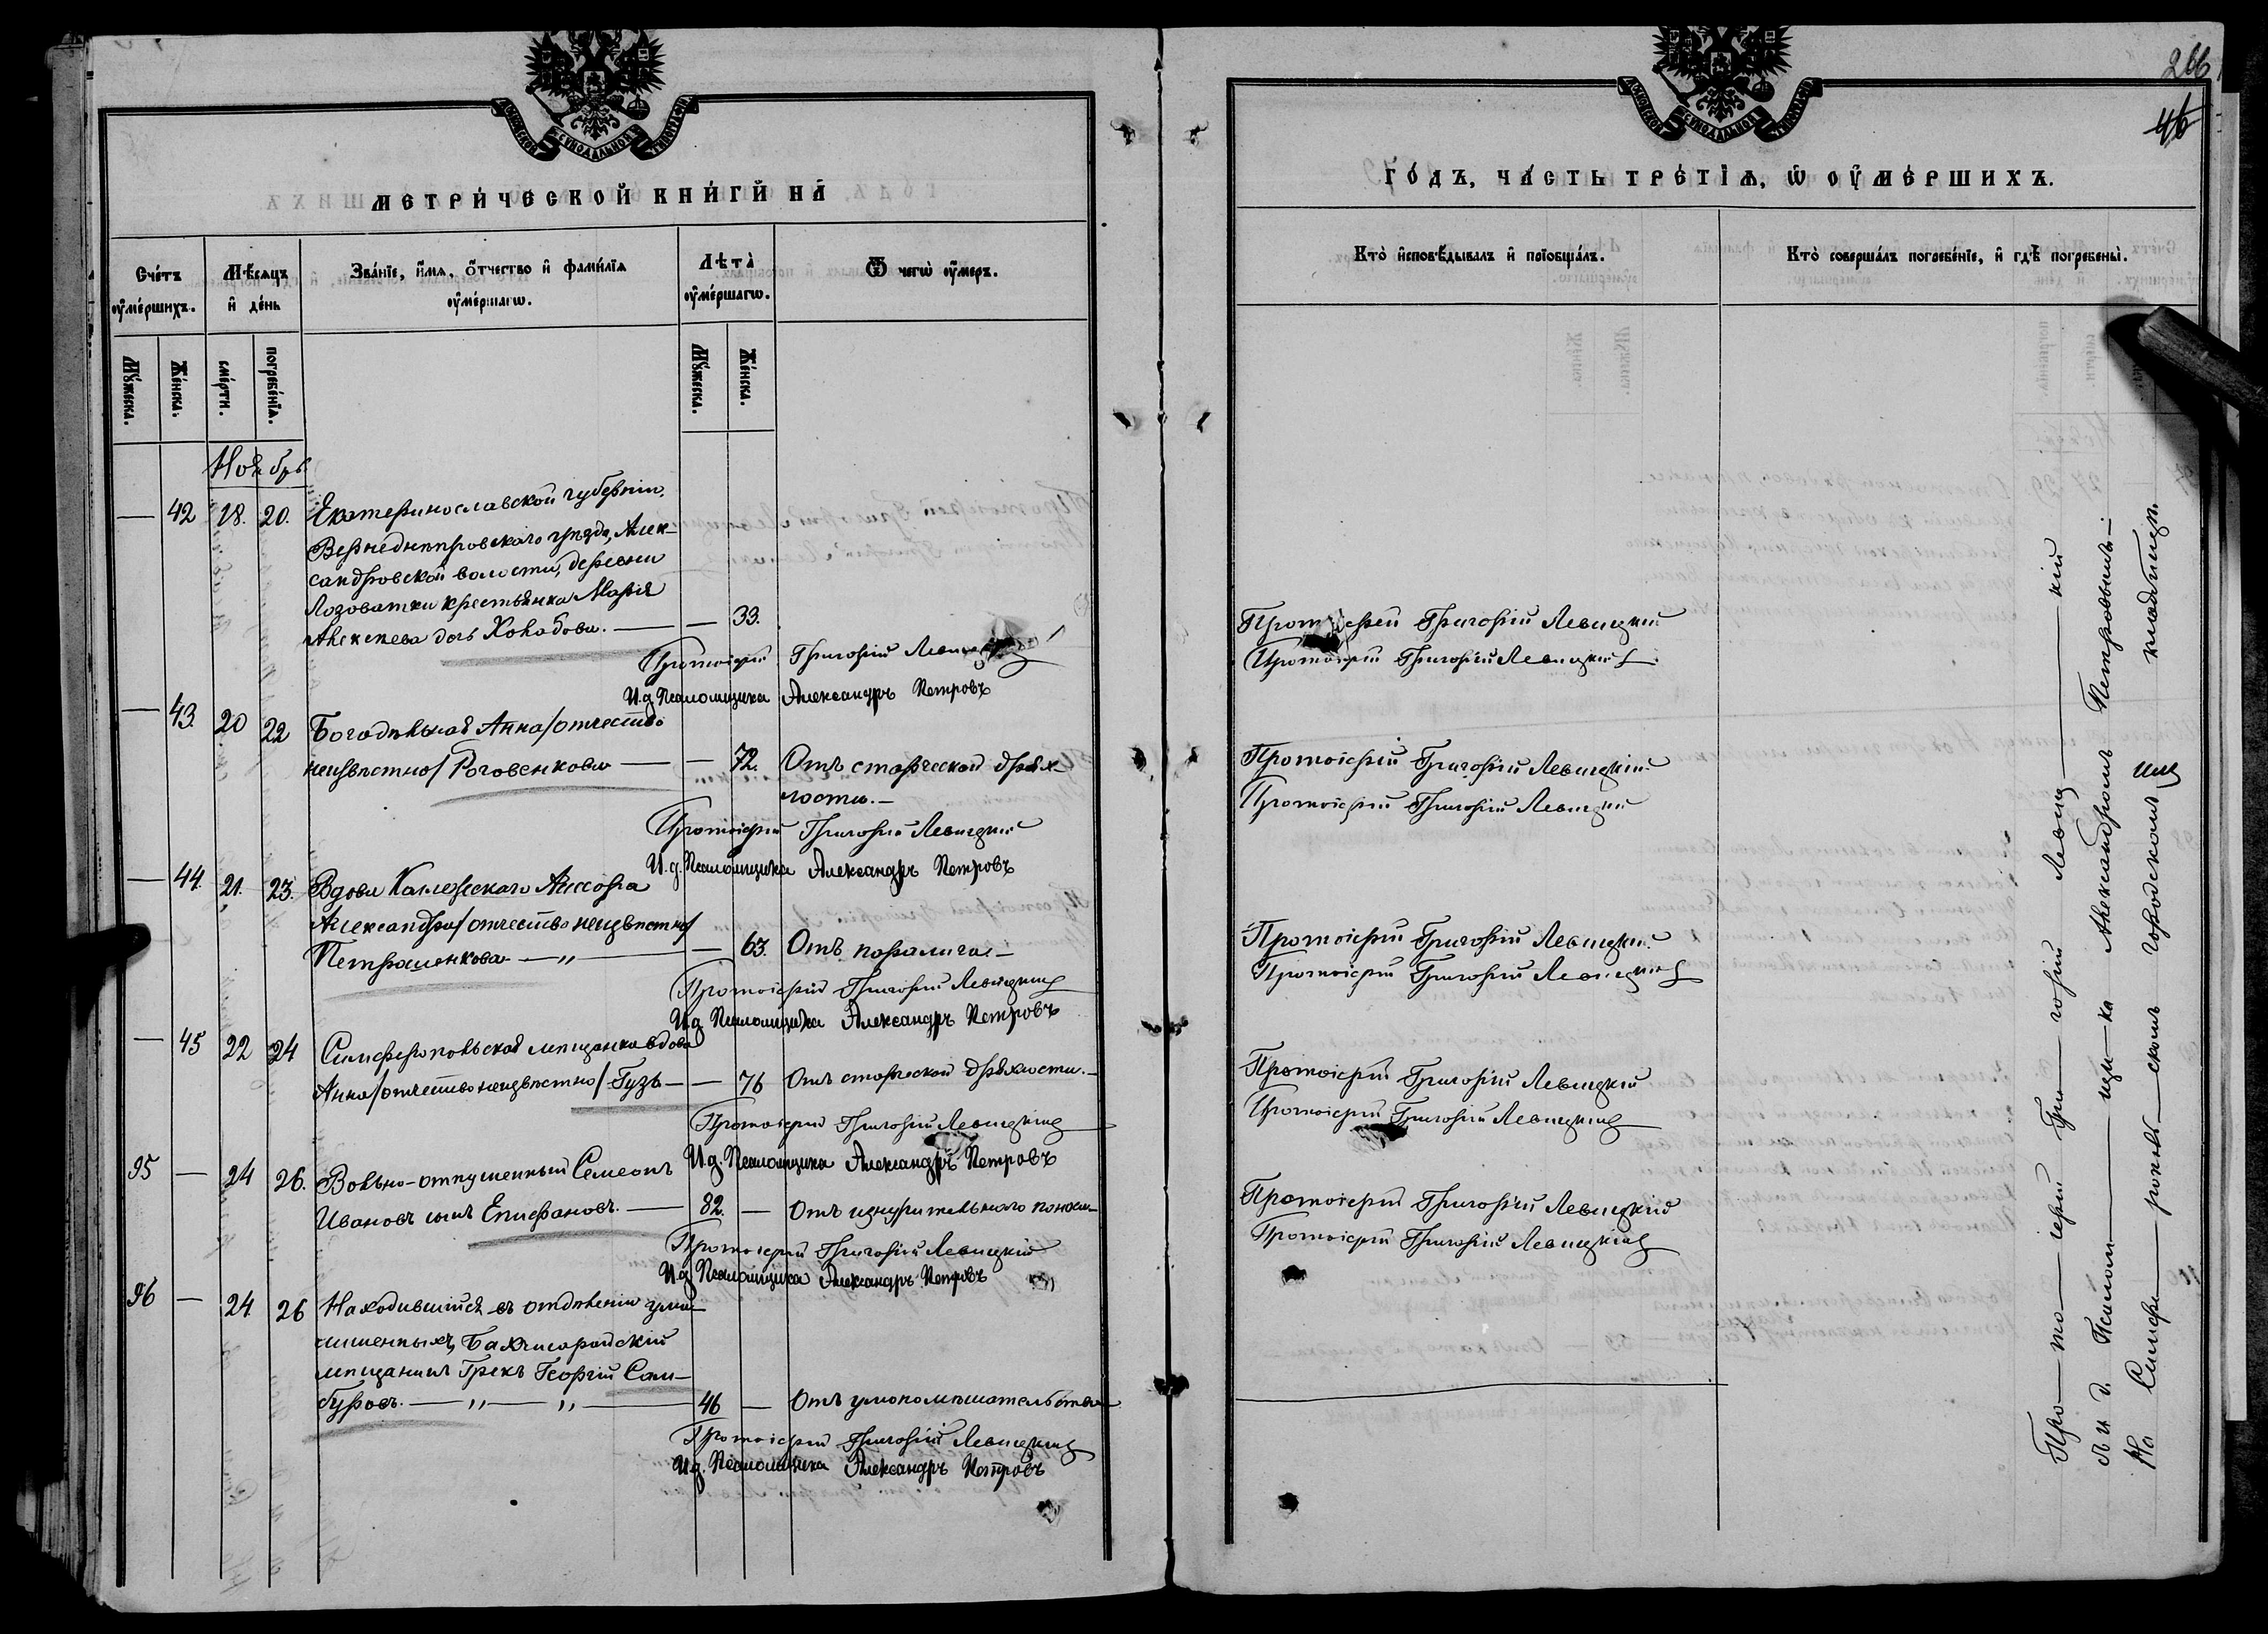 МОСКОВСКОЙ СѴНОДАЛЬНОЙ ТИПОГРАФІИ
МЕТРИ́ЧЕСКОЙ КНИ́ГИ НА̀
Сче́тъ оу҆ме́ршихъ.
Мѣ́сяцъ и҆ де́нь
Зва́нїе, и҆́мя, ѻ҆́тчество и҆ фами́лїя оу҆ме́ршагѡ.
Лѣ́та оу҆ме́ршагѡ.
Ѿ чегѡ̀ оу҆́меръ.
Мꙋ́жеска.
Же́нска.
сме́рти.
погребе́нїѧ.
Мꙋ́жеска.
Же́нска.
Ноябрь
— 42 18. 20. Екатеринославской губерніи,
Верхнеднѣпровскаго уѣзда, Алек-
сандровской волости, деревни
Лозоватки крестьянка Марія
Алексѣева дочь — — 33.
Протоіерей Григорій Левицкій
И.д. Псаломщика Александръ Петровъ
— 43. 20 22 Богодѣльная Анна /отчество
неизвѣстно/ Роговенкова — — 72. Отъ старческой дрях-
лости. —
Протоіерей Григорій Левицкій
И.д. Псаломщика Александръ Петровъ
— 44. 21. 23. Вдова Коллежскаго Ассесора
Александра /отчество неизвѣстно/
Петрашенкова — „ — — 63. Отъ паралича. —
Протоіерей Григорій Левицкій
И.д. Псаломщика Александръ Петровъ
— 45 22 24 Симферопольская мѣщанка вдова
Анна /отчество неизвѣстно/ Гузь — — 76 Отъ старческой дряхлости. —
Протоіерей Григорій Левицкій
И.д. Псаломщика Александръ Петровъ
95 — 24 26. Вольно-отпущенный Семеонъ
Ивановъ сынъ Епифановъ. — 82. — Отъ изнурительнаго поноса —
Протоіерей Григорій Левицкій
И.д. Псаломщика Александръ Петровъ
96 — 24 26 Находившійся въ отдѣленіи ума-
лишенныхъ, Бахчисарайскій
мѣщанинъ Грекъ Георгій Сам-
буровъ. — „ — „ — 46 — Отъ умопомѣшательства
Протоіерей Григорій Левицкій
И.д. Псаломщика Александръ Петровъ
266
46
МОСКОВСКОЙ СѴНОДАЛЬНОЙ ТИПОГРАФІИ
ГО́ДЪ, ЧА́СТЬ ТРЕ́ТЇѦ, Ѡ҆ ОУ҆МЕ́РШИХЪ.
Кто̀ и҆сповѣ́дывалъ и҆ прїобща́лъ.
Кто̀ соверша́лъ погребе́нїе, и҆ гдѣ̀ погребены̀.
Протоіерей Григорій Левицкій
Протоіерей Григорій Левицкій
Протоіерей Григорій Левицкій
Протоіерей Григорій Левицкій
Протоіерей Григорій Левицкій
Протоіерей Григорій Левицкій
Протоіерей Григорій Левицкій
Протоіерей Григорій Левицкій
Протоіерей Григорій Левицкій
Протоіерей Григорій Левицкій
Про — то — іерей Гри — горій Левиц — кій
съ и. д. Псалом — щи — ка Александромъ Петровымъ —
На Симфе — рополь — скомъ городскомъ кладбищѣ.